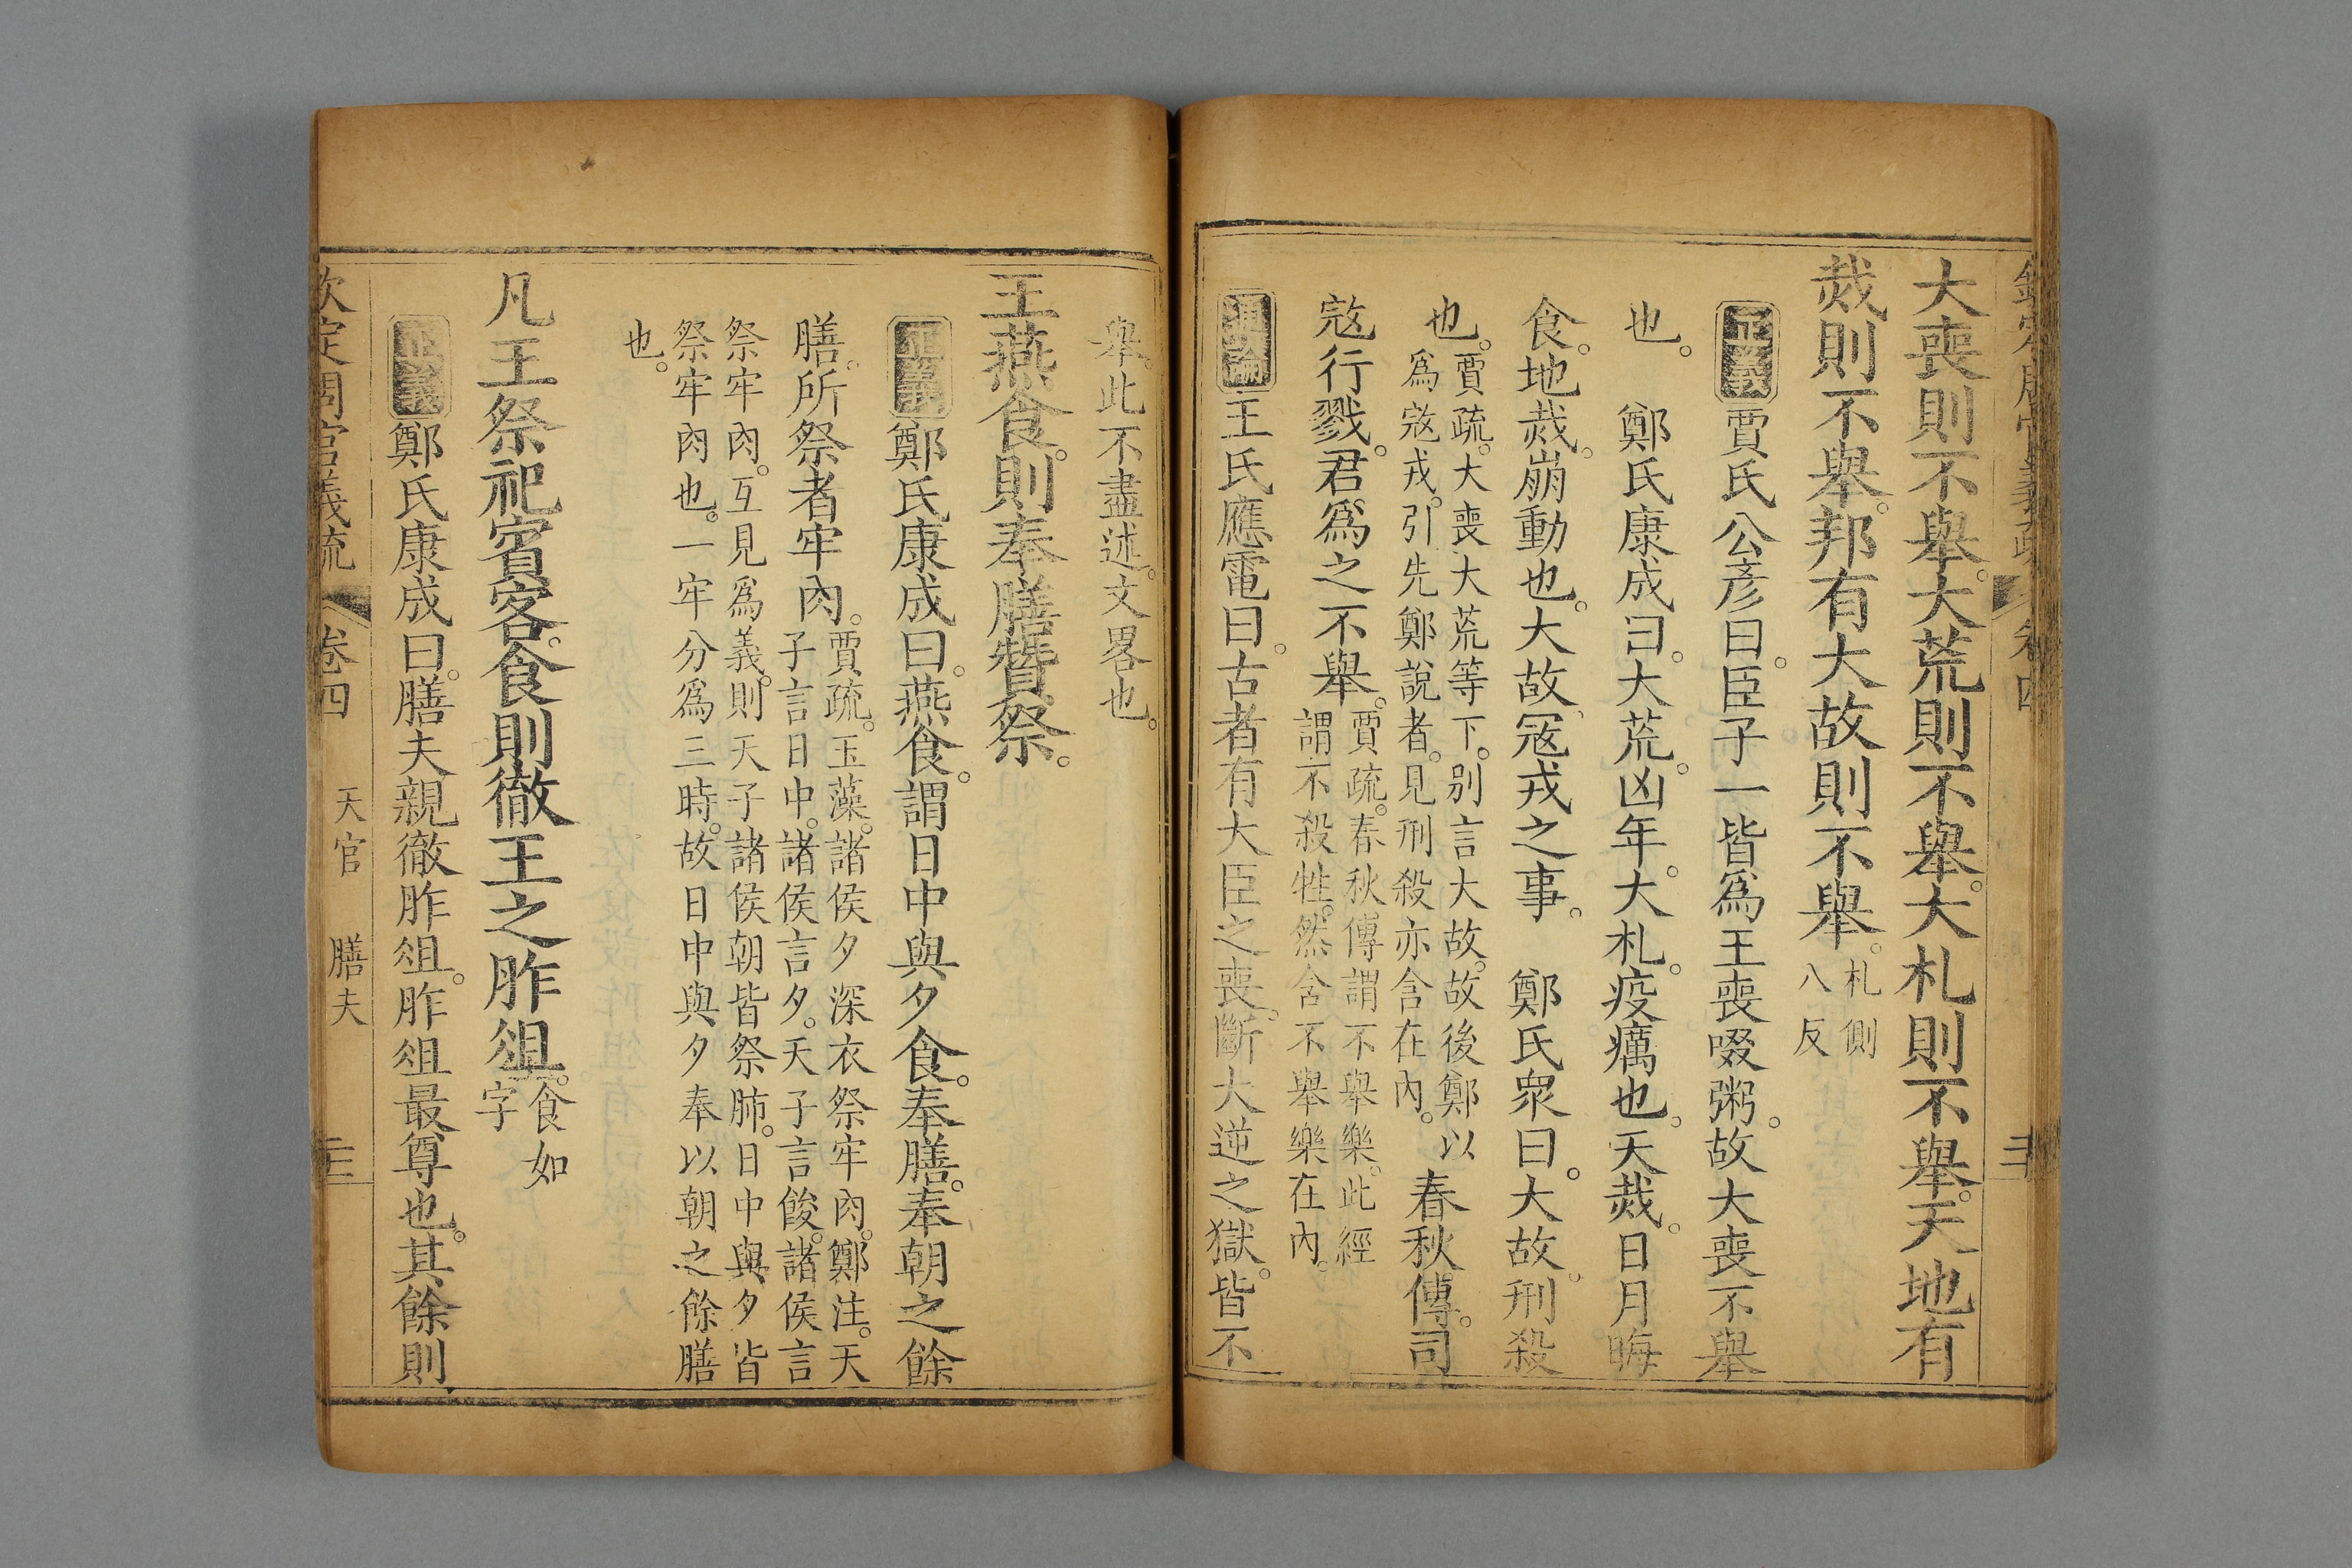 大喪則不舉。大荒則不舉。大札則不舉。天地有
烖則不舉。邦有大故則不舉。札側
八反
正義賈氏公彦曰。臣子一皆爲王喪啜粥。故大喪不舉
也。 鄭氏康成曰。大荒。凶年。大札。疫癘也。天烖。日月晦
食。地烖。崩動也。大故。寇戎之事。 鄭氏衆曰。大故。刑殺
也。賈疏。大喪大荒等下。别言大故。故後鄭以
爲寇戎。引先鄭說者。見刑殺亦含在內。春秋傳。司
寇行戮。君爲之不舉。賈疏。春秋傳謂不舉樂。此經
謂不殺牲。然含不舉樂在內。
通論王氏應電曰。古者有大臣之喪。斷大逆之獄。皆不
舉。此不盡述。文畧也。
王燕食。則奉膳贊祭。
正義鄭氏康成曰。燕食。謂日中與夕食。奉膳。奉朝之餘
膳。所祭者牢肉。賈疏。玉藻。諸侯夕深衣祭牢肉。鄭注。天
子言日中。諸侯言夕。天子言餕。諸侯言
祭牢肉。互見爲義。則天子諸侯朝皆祭肺。日中與夕皆
祭牢肉也。一牢分爲三時。故日中與夕奉以朝之餘膳
也。
凡王祭祀賓客。食則徹王之胙俎。食如
字
正義鄭氏康成曰。膳夫親徹胙俎。胙俎最尊也。其餘則
欽定周官義疏 卷四 天官 膳夫